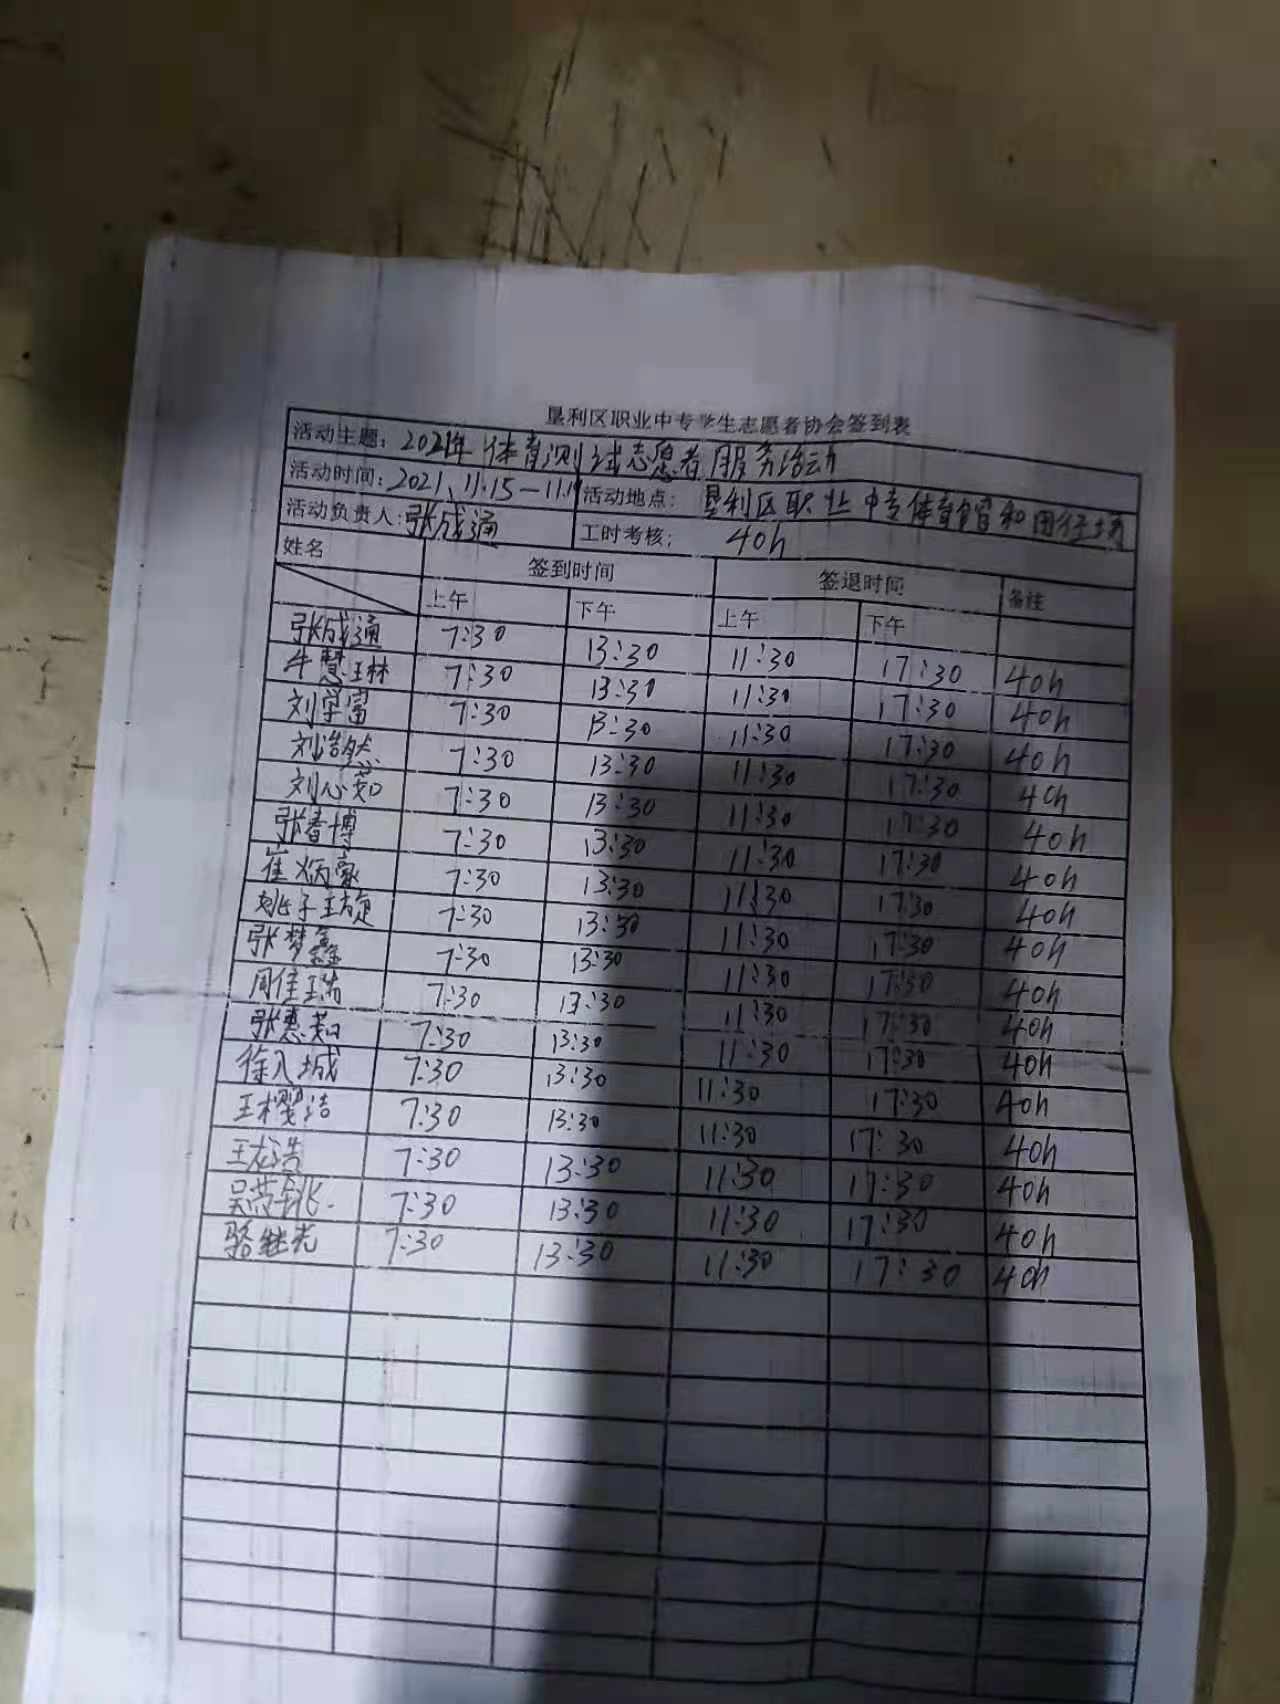 垦利区职业中专学生志愿者协会签到表
活动主题：2021年体育测试志愿者服务活动
活动时间：2021、11.15—11.19 活动地点：垦利区职业中专体育馆和田径场
活动负责人：张成通 工时考核：40h
姓名 签到时间 签退时间 备注
上午 下午 上午 下午
张成通 7:30 13:30 11:30 17:30 40h
牛慧琳 7:30 13:30 11:30 17:30 40h
刘学富 7:30 13:30 11:30 17:30 40h
刘浩然 7:30 13:30 11:30 17:30 40h
刘心茹 7:30 13:30 11:30 17:30 40h
张春博 7:30 13:30 11:30 17:30 40h
崔炳豪 7:30 13:30 11:30 17:30 40h
姚子琔 7:30 13:30 11:30 17:30 40h
张梦鑫 7:30 13:30 11:30 17:30 40h
周佳瑞 7:30 13:30 11:30 17:30 40h
张惠茹 7:30 13:30 11:30 17:30 40h
徐入城 7:30 13:30 11:30 17:30 40h
王樱洁 7:30 13:30 11:30 17:30 40h
王龙浩 7:30 13:30 11:30 17:30 40h
吴 7:30 13:30 11:30 17:30 40h
骆继光 7:30 13:30 11:30 17:30 40h